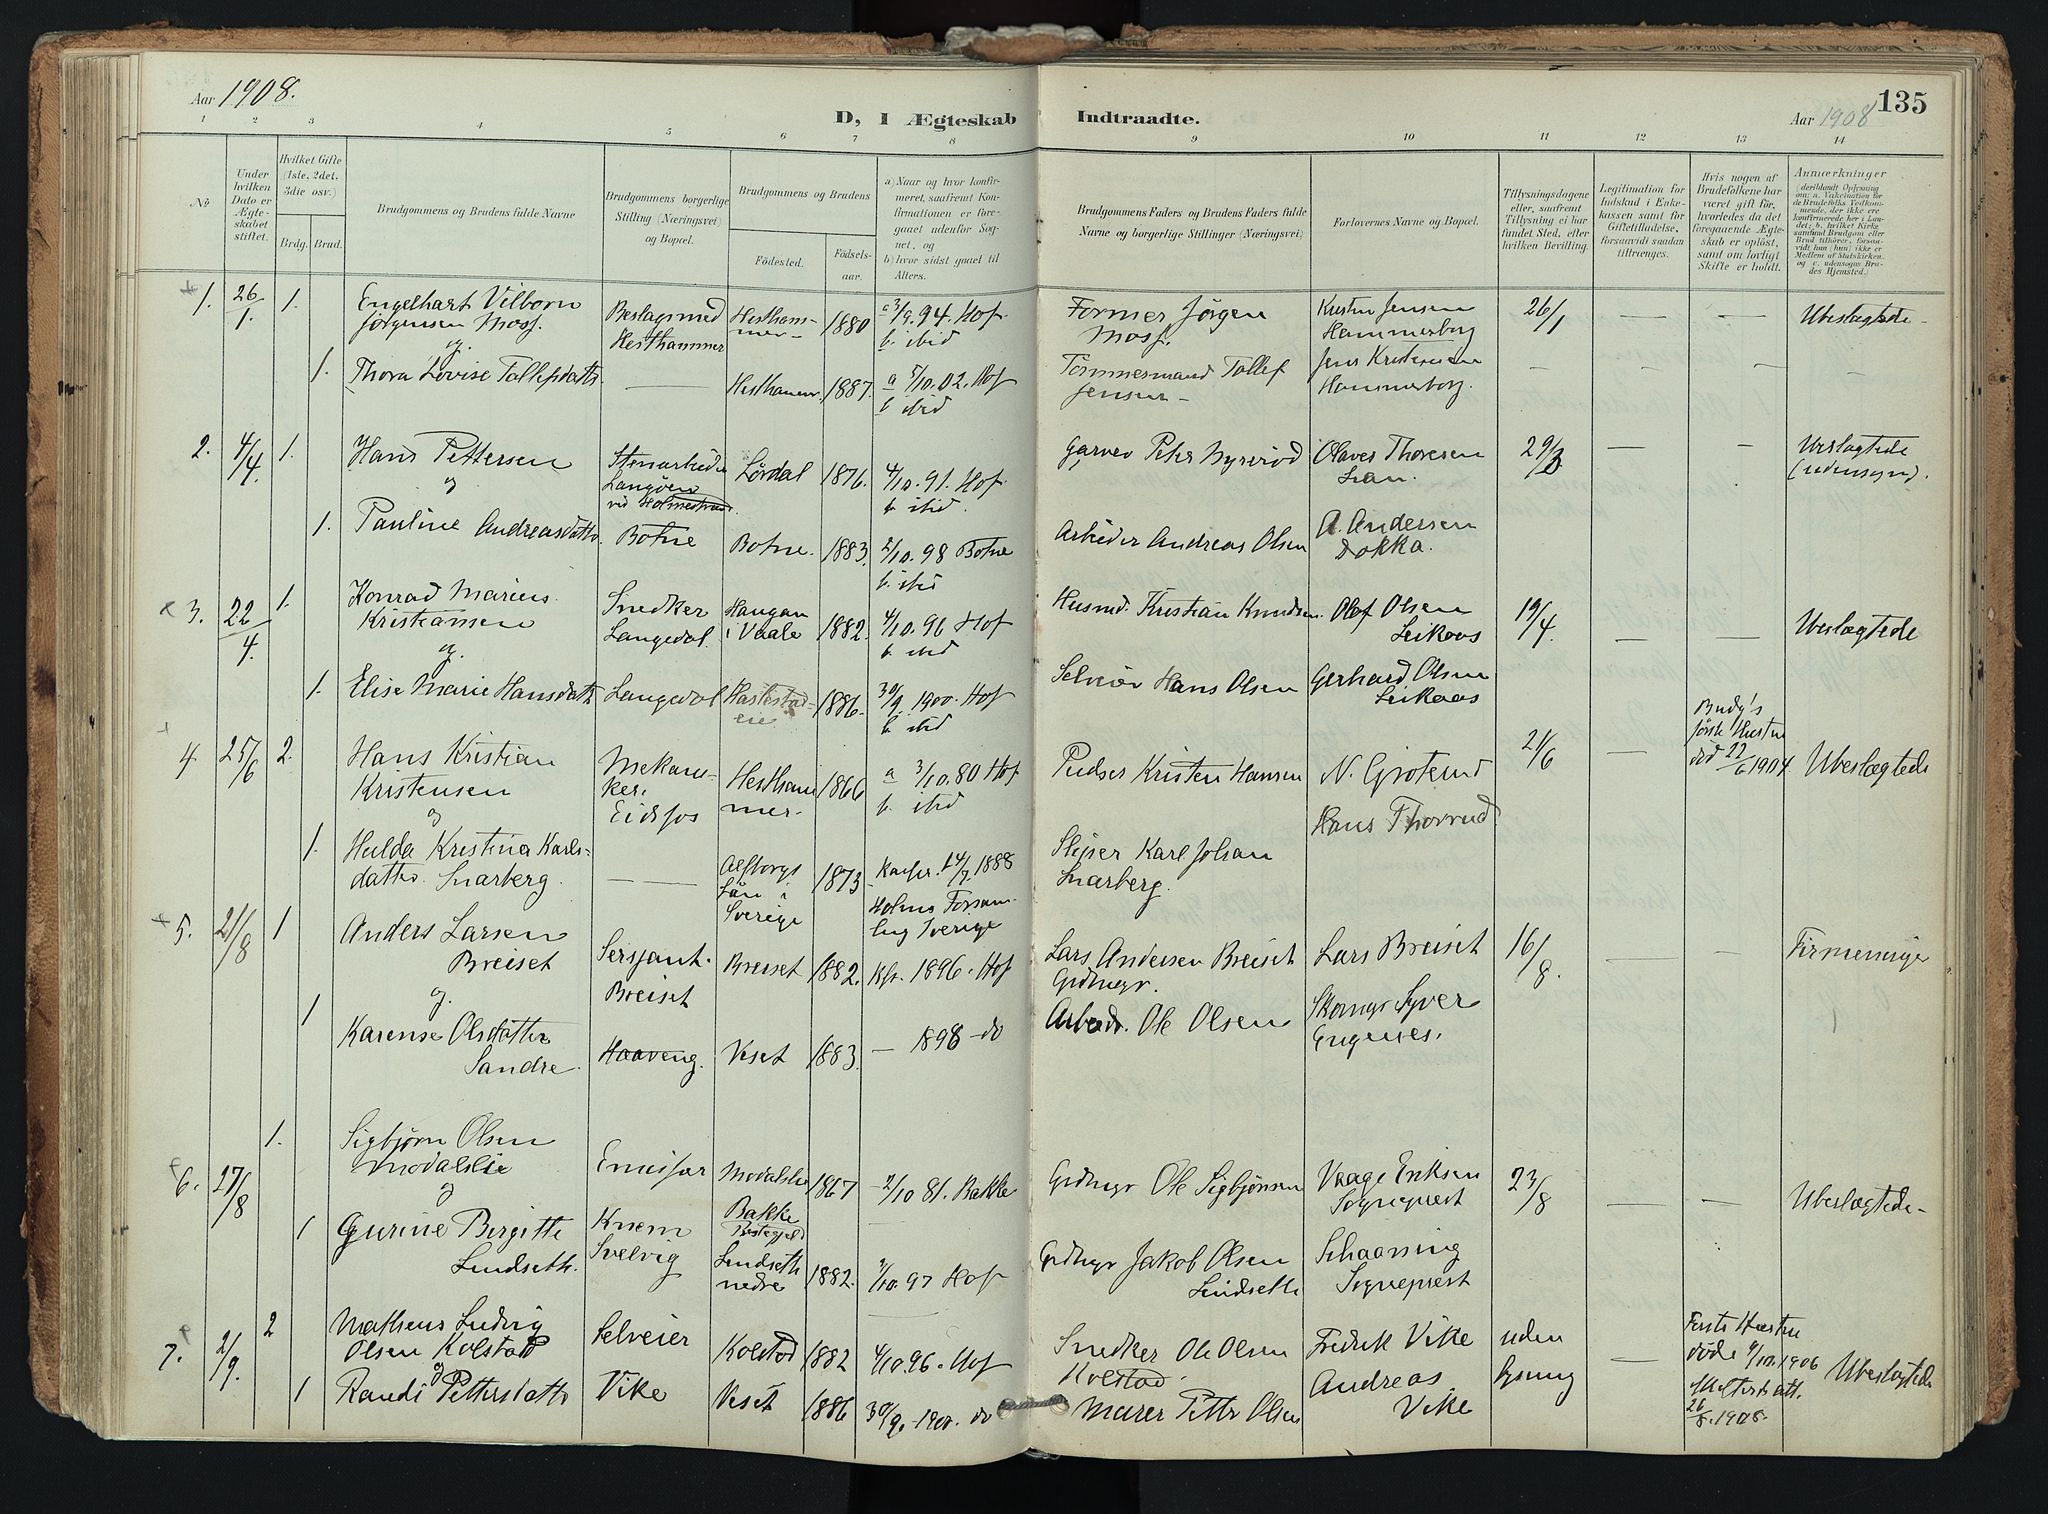 Aar 1908.
D, I Ægteskab Indtraadte.
Aar 1908
135
1 2 3 4 5 6 7 8 9 10 11 12 13 14
No
Under hvilken Dato er Ægteskabet stiftet.
Hvilket Gifte (1ste, 2det, 3die osv.)
Brdg. Brud.
Brudgommens og Brudens fulde Navne
Brudgommens borgerlige Stilling (Næringsvei) og Bopæl.
Brudgommens og Brudens
Fødested. Fødselsaar.
a) Naar og hvor konfirmeret, saafremt Konfirmationen er foregaaet udenfor Sognet, og
b) hvor sidst gaaet til Alters.
Brudgommens Faders og Brudens Faders fulde Navne og borgerlige Stillinger (Næringsvei)
Forlovernes Navne og Bopæl.
Tillysningsdagene eller, saafremt Tillysning ei har fundet Sted, efter hvilken Bevilling.
Legitimation for Indskud i Enkekassen samt for Giftetilladelse, forsaavidt saadan tiltrænges.
Hvis nogen af Brudefolkene har været gift før, hvorledes da det foregaaende Ægteskab er opløst, samt om lovligt Skifte er holdt.
Anmærkninger
(deriblandt Oplysning om: a. Vakcination for de Brudefolks Vedkommende, der ikke ere konfirmerede her i Landet; b. hvilket Kirkesamfund Brudgom eller Brud tilhører, forsaavidt han (hun) ikke er Medlem af Statskirken, og c. udensogns Brudes Hjemsted.
1. 26/1. 1. Engelhart Vilborn Jørgensen Mosf. Beslagsmed Hesthammer Hesthammer 1880 a 3/9. 94. Hof b. ibid Former Jørgen Mosf. Kristen Jensen Hammerborg 26/1 — — Ubeslægtede
og
1. Thora Lovise Tollefsdattr. — Hesthammr. 1887. a 5/10. 02. Hof b. ibid Tømmermand Tollef Jensen Jens Kristensen Hammerborg.
2. 4/4. 1. Hans Pettersen Stenarbeider Langøen ved Holmestrand. Lørdal 1876. 4/10. 91. Hof b. ibid. Garver Peter Nyrerød Olaves Thoresen Lian. 29/3 — — Ubeslægtede (udensogns).
og
1. Pauline Andreasdattr. Botne Botne. 1883. 2/10. 98 Botne b. ibid Arbeider Andreas Olsen A. Andersen Dokka.
3. 22/4. 1. Konrad Marius Kristiansen Snedker Langedal. Haugan i Vaale 1882. 4/10. 96 Hof b. ibid Husmd. Kristian Knudsen Olof Olsen Leikaas 19/4. — — Ubeslægtede
og
1. Elise Marie Hansdattr. Langedal Hastestadeie 1886. 30/9. 1900. Hof b. ibid Selveier Hans Olsen Gerhard Olsen Leikaas
4. 25/6 2. Hans Kristian Kristensen Mekaniker. Eidsfos Hesthammer. 1866 a 3/10. 80 Hof b. ibid Pudser Kristen Hansen N. Grøterud 21/6 — Brudg's første Hustru død 22/6 1904 Ubeslægtede
og
1. Hulda Kristina Karlsdatter. Snarberg. — Alfborgs Län i Sverige 1873 Konfr. 14/7. 1888 Holms Forsamling Sverige Sliper Karl Johan Snarberg. Hans Thorrud
5. 21/8 1 Anders Larsen Breiset Sersjant. Breiset Breiset 1882. Kfr. 1896. Hof Lars Andersen Breiset Grdmgr. Lars Breiset 16/8. — — Firmenninger
og.
1 Karense Olsdatter Sandre Haaveng. Veset 1883. — 1898 do Arbeidr. Ole Olsen Skomgr Syver Engenes.
6. 27/8 1. Sigbjørn Olsen Modalslie Emissær Modalslie Bakke Prestegjeld 1867 2/10 81. Bakke Grdmgr Ole Sigbjønsen Vaage Eriksen Sogneprest 23/8 — Ubeslægtede
og
1 Gurine Birgitte Lindseth. Knem Svelvig Lindseth nedre 1882. 3/10. 97 Hof Grdmgr Jakob Olsen Lindseth Schaanning Sogneprest
7. 2/9. 2 Matheus Ludvig Olsen Kolstad Selveier Kolstad 1882 4/10. 96. Hof Snedker Ole Olsen Kolstad. Fredrik Vike uden lysning — Første Hustru døde 9/10. 1906 26/8. 1908. Ubeslægtede
og
1 Randi Pettersdattr Vike Veset 1886 30/9. 1900. do Murer Petter Olsen Andreas Vike